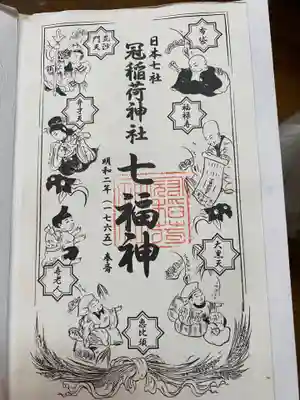 日本七社
冠稲荷神社
七福神
明和二年(一七六五)奉斎
布袋
福禄寿
大黒天
恵比須
寿老人
弁才天
毘沙門天